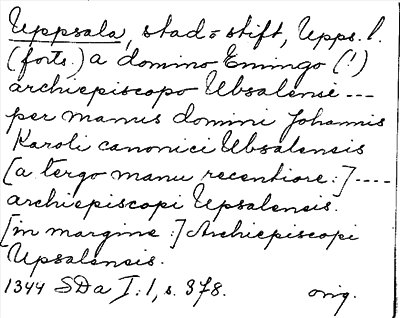 Uppsala, stad o stift, Upps. l.
(forts.) a domino Emingo (!)
archiepiscopo Ubsalensi ---
per manus domini Johannis
Karoli canonici Ubsalensis
[a tergo manu recentiore:] ----
archiepiscopi Upsalensis.
[in margine:] Archiepiscopi
Upsalensis.
1344 SDa I:1, s. 378. orig.